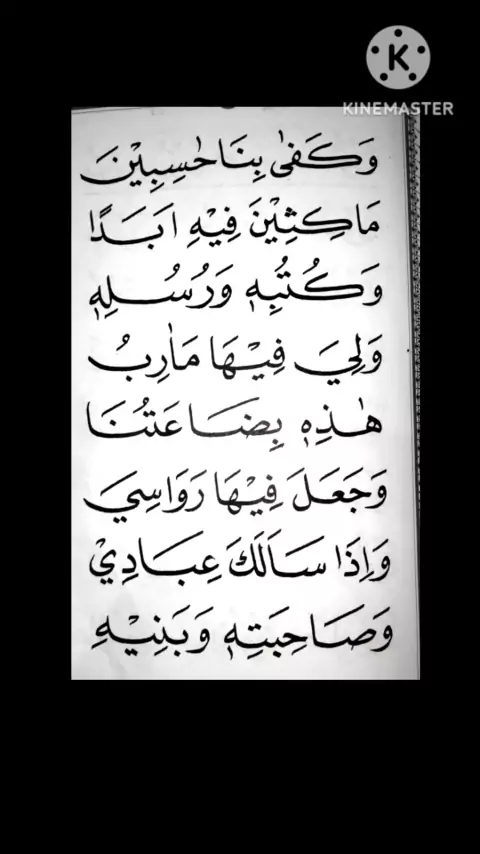 KINEMASTER
وَكَفٰى بِنَا حٰسِبِيْنَ
مَاكِثِيْنَ فِيْهِ اَبَدًا
وَكُتُبِهٖ وَرُسُلِهٖ
وَلِيَ فِيْهَا مَاٰرِبُ
هٰذِهٖ بِضَاعَتُنَا
وَجَعَلَ فِيْهَا رَوَاسِيَ
وَاِذَا سَاَلَكَ عِبَادِيْ
وَصَاحِبَتِهٖ وَبَنِيْهِ